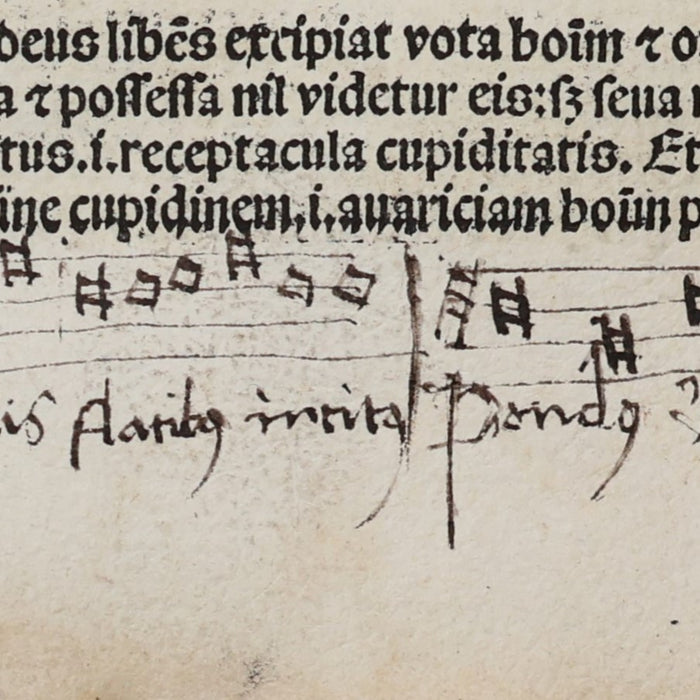 deus libēs excipiat vota boīm ⁊ o
a ⁊ possessa nil videtur eis: sꝫ seua
tus.i.receptacula cupiditatis. Et
cupidinem.i.auariciam boūm p
is flatibꝯ incitꝯ Pondꝯ